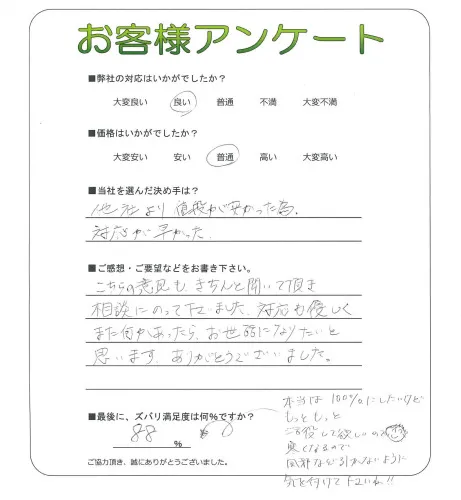 お客様アンケート
■弊社の対応はいかがでしたか？
大変良い 良い 普通 不満 大変不満
■価格はいかがでしたか？
大変安い 安い 普通 高い 大変高い
■当社を選んだ決め手は？
他社より値段が安かった為.
対応が早かった.
■ご感想・ご要望などをお書き下さい。
こちらの意見も きちんと聞いて頂き
相談にのって下さいました. 対応も優しく
また何かあったら、お世話になりたいと
思います。ありがとうございました。
■最後に、ズバリ満足度は何％ですか？
88 ％
本当は100%にしたいけど
もっともっと
活役して欲しいの
夏になるので
風邪など引かないように
気を付けて下さいね!!
ご協力頂き、誠にありがとうございました。